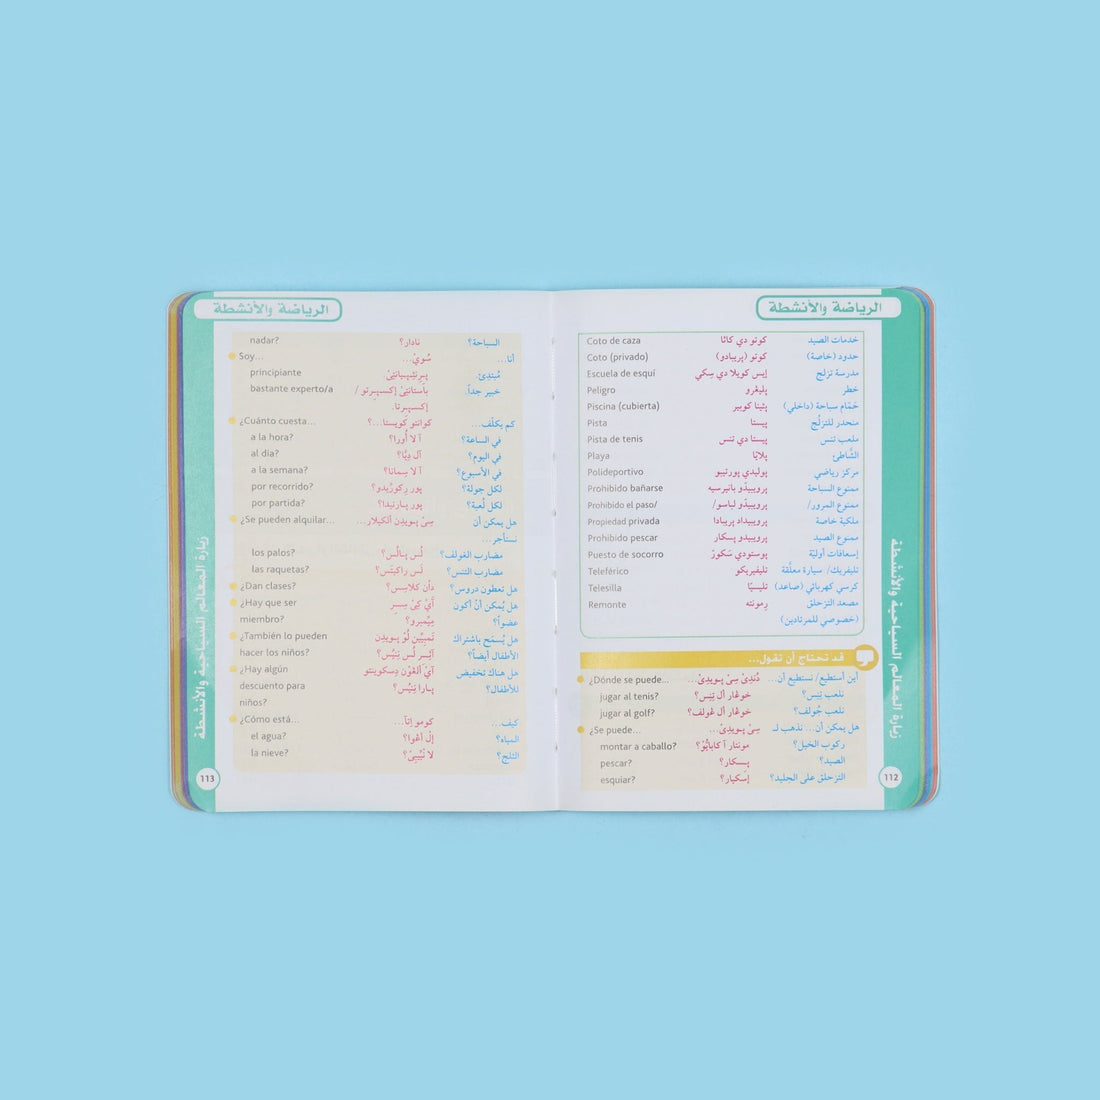 الرياضة والأنشطة
Coto de caza كوتو دي كاثا خدمات الصيد
Coto (privado) كوتو (پريبادو) حدود (خاصة)
Escuela de esquí إيس كويلا دي سكي مدرسة تزلج
Peligro پليغرو خطر
Piscina (cubierta) پثينا كوبير حَمّام سباحة (داخلي)
Pista پيستا منحدر للتزلُّج
Pista de tenis پيستا دي تنس ملعب تنس
Playa پلايّا الشَّاطئ
Polideportivo پوليدي پورتيبو مركز رياضي
Prohibido bañarse پروبيبدّو بانيرسيه ممنوع السباحة
Prohibido el paso/ پروبيبدّو لپاسو/ ممنوع المرور/
Propiedad privada پروپيداد پريبادا ملكية خاصة
Prohibido pescar پروبيبدّو پسكار ممنوع الصيد
Puesto de socorro پوستودي سَكورّ إسعافات أوليّة
Teleférico تليفيريكو تليفريك/ سيارة معلَّقة
Telesilla تليسيّا كرسي كهربائي (صاعد)
Remonte رِمونته مصعد التزحلق
(خصوصي للمرتادين)
قد تحتاج أن تقول...
¿Dónde se puede... دُندِيْ سِيْ پـويدِيْ... أين أستطيع/ نستطيع أن...
jugar al tenis? خوغَار أل تِنِس؟ نلعب تِنِس؟
jugar al golf? خوغَار أل غولف؟ نلعب جُولف؟
¿Se puede... سِيْ پـويدِيْ... هل يمكن أن... نذهب لـ
montar a caballo? مونتار آ كابائُوْ؟ ركوب الخيل؟
pescar? پسكار؟ الصيد؟
esquiar? إسكيار؟ التزحلق على الجليد؟
زيارة المعالم السياحية والأنشطة
112
الرياضة والأنشطة
nadar? نادار؟ السباحة؟
Soy... سُويْ... أنا...
principiante پـرِنثيـپـيانتِيْ مُبتدِئ.
bastante experto/a باستانتِيْ إكسـپـرتو / خبير جداً.
إكسـپـرتا.
¿Cuánto cuesta... كوانتو كويستا...؟ كم يكلّف...
a la hora? آ لا أُورا؟ في الساعة؟
al día? آل دِيَّا؟ في اليوم؟
a la semana? آ لا سِمانا؟ في الأسبوع؟
por recorrido? پور رِكورْيدو؟ لكل جولة؟
por partida? پور پـارتيدا؟ لكل لُعبة؟
¿Se pueden alquilar... سِيْ پـويدِن ألكيلار... هل يمكن أن
نستأجر...
los palos? لُس پـالُس؟ مضارب الغولف؟
las raquetas? لَس راكيتَس؟ مضارب التنس؟
¿Dan clases? دَان كلاسِس؟ هل تعطون دروس؟
¿Hay que ser آيْ كِيْ سِـر هل يُمكن أنْ أكون
miembro? مِيْمبرو؟ عضواً؟
¿También lo pueden تَمبيِّين لُوْ پـويدِن هل يُسمَح باشتراك
hacer los niños? آثِـر لُس نِنيُس؟ الأطفال أيضاً؟
¿Hay algún آيْ ألغُون دِسكوينتو هل هناك تخفيض
descuento para پـارا نِنيُس؟ للأطفال؟
niños?
¿Cómo está... كومو إتّا... كيف...
el agua? إل آغوا؟ المياه؟
la nieve? لا نَيْبِيْ؟ الثلج؟
زيارة المعالم السياحية والأنشطة
113